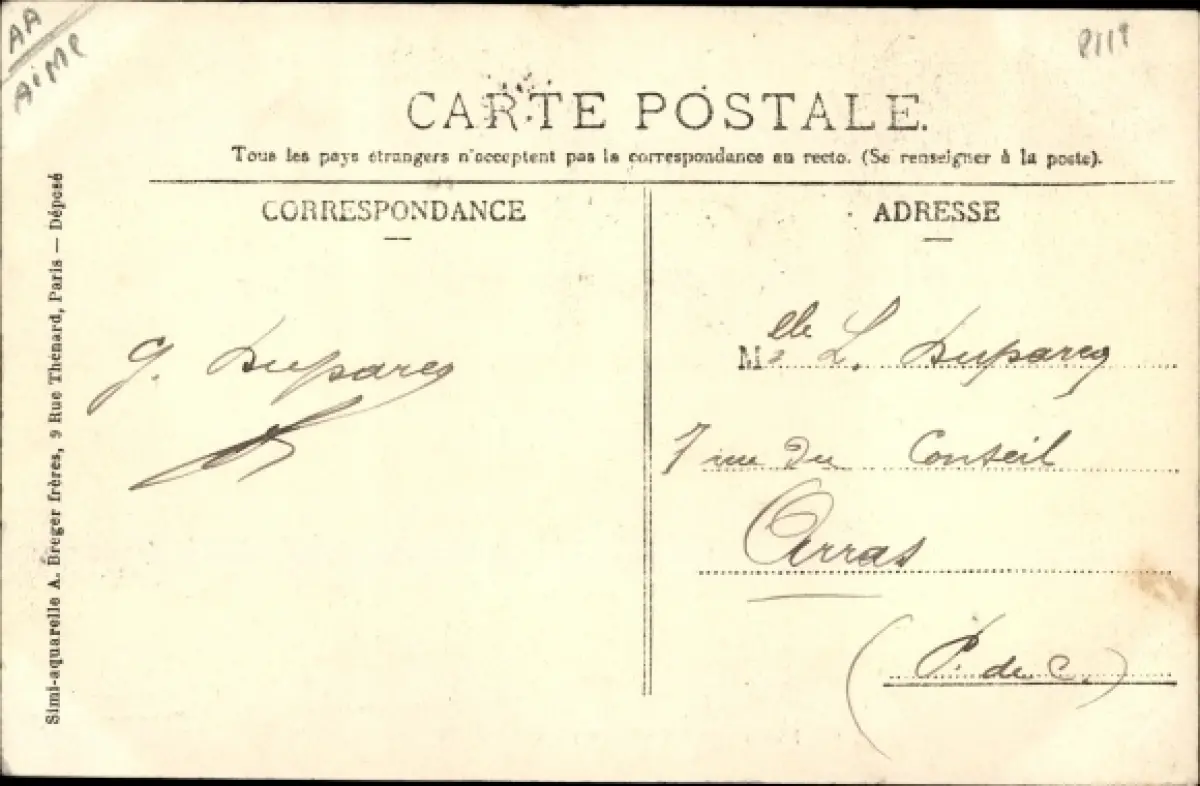 AA
AIME
CARTE POSTALE.
Tous les pays étrangers n'acceptent pas la correspondance au recto. (Se renseigner à la poste).
CORRESPONDANCE
G. Duparcq
ADRESSE
Mlle L. Duparcq
7 rue du Conseil
Arras
(P. de C.)
Simi-aquarelle A. Breger frères, 9 Rue Thénard, Paris — Déposé